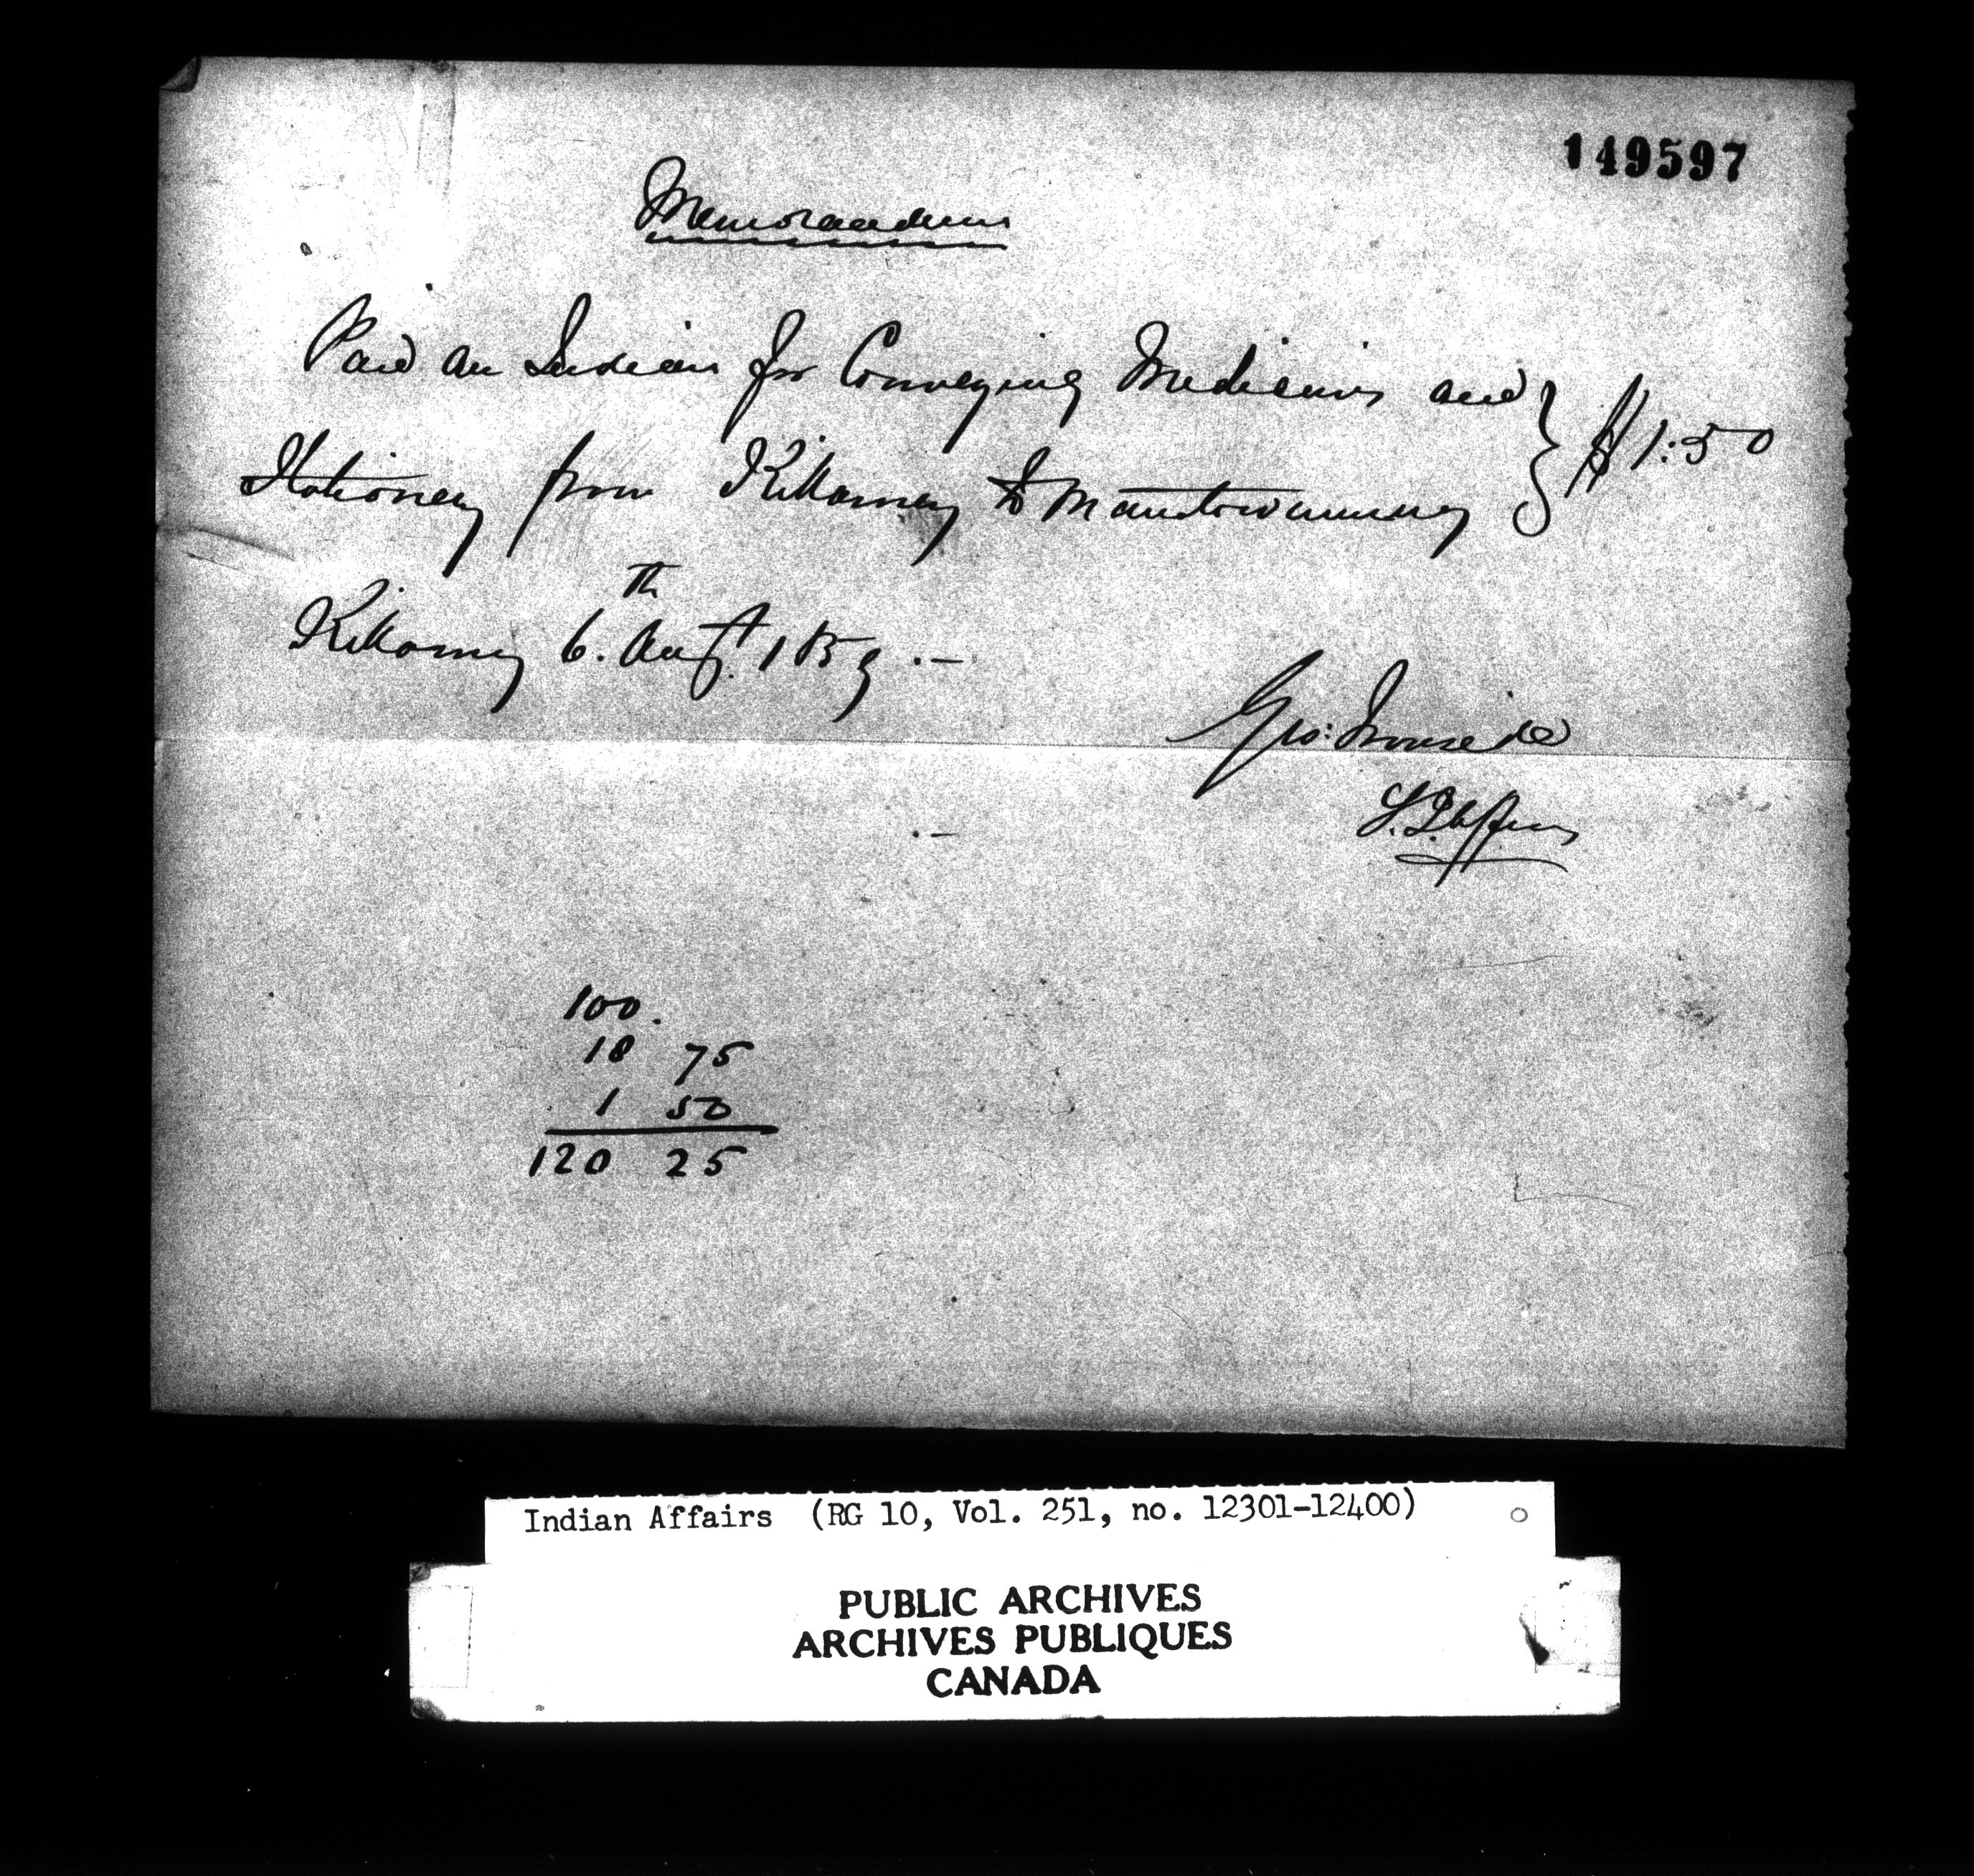 149597
Memorandum
Paid an Indian for Conveying Medicines and
Stationery from Killarney to Manitowaning } $1:50
Killarney 6.th Augt. 1859 .—
Geo: Ironside
S.I. Affairs
100.
18 75
1 50
120 25
Indian Affairs (RG 10, Vol. 251, no. 12301-12400)
PUBLIC ARCHIVES
ARCHIVES PUBLIQUES
CANADA